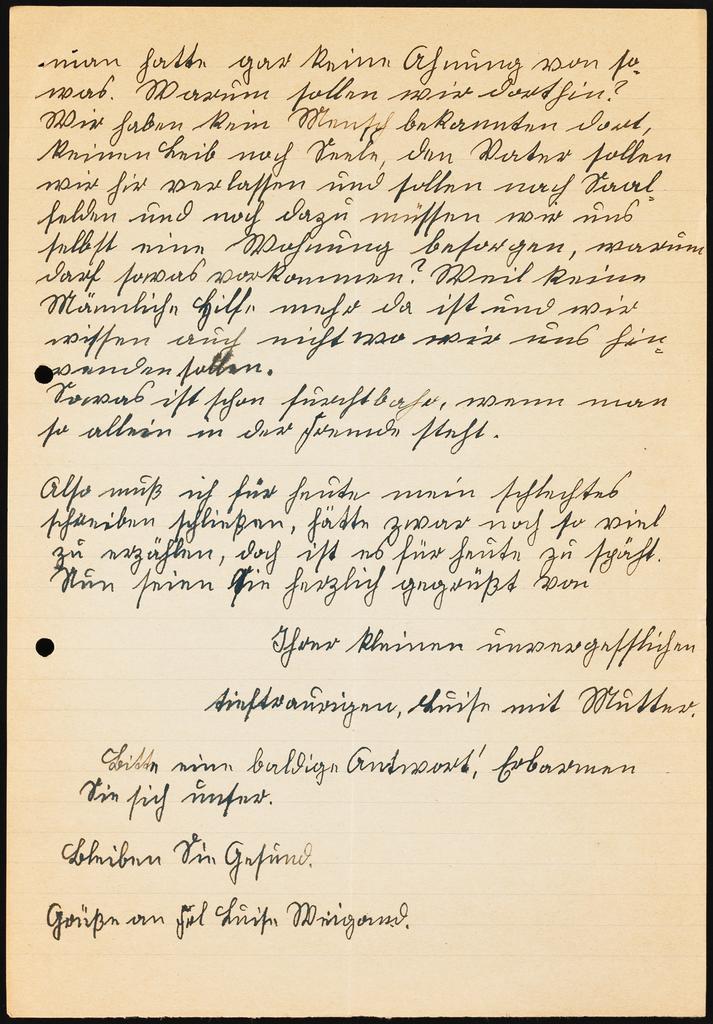 man hatte gar keine Ahnung von so
was. Warum sollen wir dorthin?
Wir haben kein Mensch bekannten dort,
keinen Leib noch Seele, den Vater sollen
wir hir verlassen und sollen nach Saal-
felden und noch dazu müssen wir uns
selbst eine Wohnung besorgen, warum
darf sowas vorkommen? Weil keine
Männliche Hilfe mehr da ist und wir
wissen auch nicht wo wir uns hin-
wenden sollen.
Sowas ist schon furchtbahr, wenn man
so allein in der Fremde steht.
Also muß ich für heute mein schlechtes
schreiben schließen, hätte zwar noch so viel
zu erzählen, doch ist es für heute zu späht.
Nun seien Sie herzlich gegrüßt von
Ihrer kleinen unvergesslichen
tieftraurigen, Luise mit Mutter.
Bitte eine baldige Antwort! Erbarmen
Sie sich unser.
Bleiben Sie Gesund.
Grüße an Frl Luise Weigand.